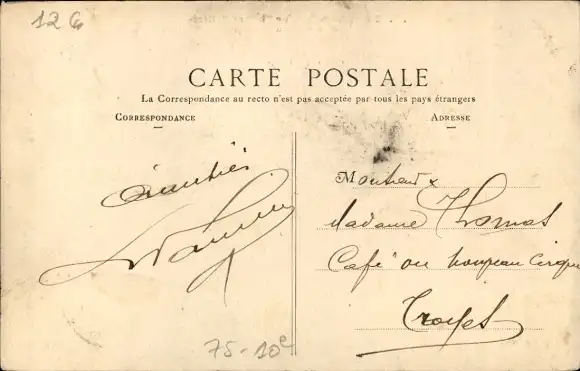 12 €
CARTE POSTALE
La Correspondance au recto n'est pas acceptée par tous les pays étrangers
CORRESPONDANCE
ADRESSE
Amitiés
Monsieur &
Madame Thomas
Café du nouveau Cirque
Troyes
75-10e